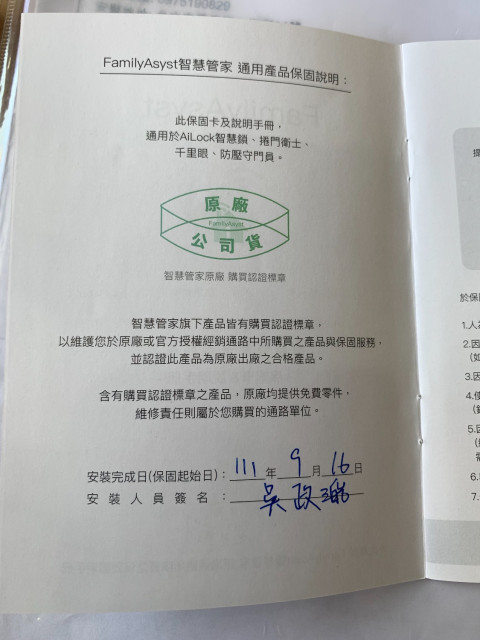 FamilyAsyst智慧管家 通用產品保固說明：
此保固卡及說明手冊，
適用於AiLock智慧鎖、捲門衛士、
千里眼、防壓守門員。
原廠
FamilyAsyst
公司貨
智慧管家原廠 購買認證標章
智慧管家旗下產品皆有購買認證標章，
以維護您於原廠或官方授權經銷通路中所購買之產品與保固服務，
並認證此產品為原廠出廠之合格產品。
含有購買認證標章之產品，原廠均提供免費零件，
維修責任則屬於您購買的通路單位。
安裝完成日(保固起始日)：111年9月16日
安裝人員簽名：吳政
於保
1.人
2.因
3.因
4.使
5.因
6.
7.